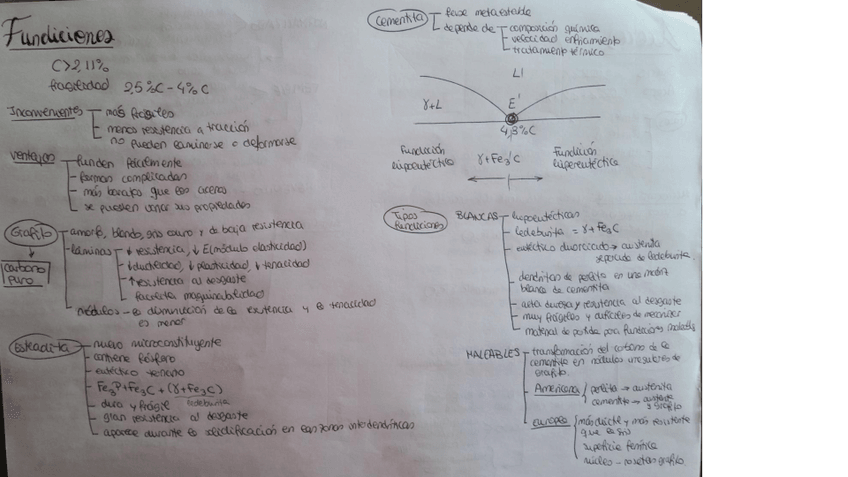 Fundiciones
C>2,11%
fragilidad 2,5%C - 4%C
Inconvenientes
más frágiles
menos resistencia a tracción
no pueden laminarse o deformarse
ventajas
funden fácilmente
formas complicadas
más baratas que los aceros
se pueden variar sus propiedades
Grafito
carbono puro
amorfo, blando, gris oscuro y de baja resistencia
láminas
↓ resistencia, ↓ E(módulo elasticidad)
↓ ductilidad, ↓ plasticidad, ↓ tenacidad
↑ resistencia al desgaste
facilita maquinabilidad
nódulos - la disminución de la resistencia y la tenacidad
es menor
Esteadita
nuevo microconstituyente
contiene fósforo
eutéctico ternario
Fe3P+Fe3C+(γ+Fe3C)
ledeburita
dura y frágil
gran resistencia al desgaste
aparece durante la solidificación en las zonas interdendríticas
Cementita
fase metaestable
depende de
composición química
velocidad enfriamiento
tratamiento térmico
L'
γ+L
E'
4,3%C
Fundición hipoeutéctica
γ+Fe3C
Fundición hipereutéctica
Tipos fundiciones
BLANCAS
hipoeutécticas
Ledeburita = γ+Fe3C
eutéctico divorciado → austenita
separada de ledeburita
dendritas de perlita en una matriz
blanca de cementita
alta dureza y resistencia al desgaste
muy frágiles y difíciles de mecanizar
material de partida para fundiciones maleables
MALEABLES
transformación del carbono de la
cementita en nódulos irregulares de
grafito.
Americana
perlita → austenita
cementita → austenita y grafito
europea
más dúctil y más resistente
que la
superficie ferrítica
núcleo - rosetas grafito